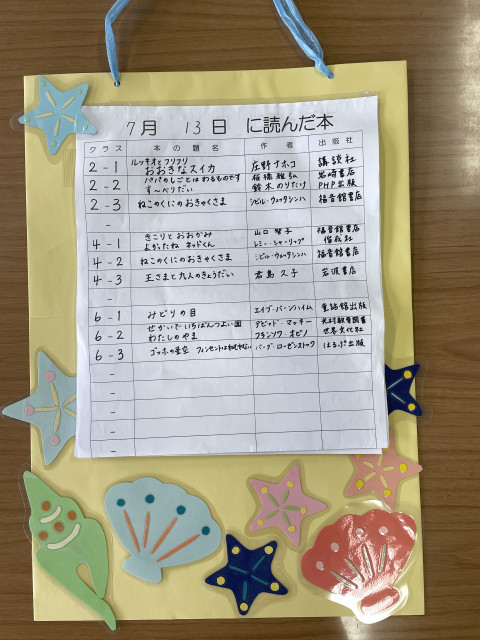 7月 13日 に読んだ本
クラス 本の題名 作者 出版社
2-1 ルッキオとフリフリ おおきなスイカ 庄野ナホコ 講談社
2-2 パパのしごとはわるものです 板橋雅弘 岩崎書店
すーべりだい 鈴木のりたけ PHP出版
2-3 ねこのくにのおきゃくさま シビル・ウェッタシンハ 福音館書店
-
4-1 きこりとおおかみ 山口智子 福音館書店
よかったね ネッドくん レミー・シャーリップ 偕成社
4-2 ねこのくにのおきゃくさま シビル・ウェッタシンハ 福音館書店
4-3 王さまと九人のきょうだい 君島久子 岩波書店
-
6-1 みどりの目 エイブ・バーンバイム 童話館出版
6-2 せかいでいちばんつよい国 デビッド・マッキー 光村教育図書
わたしのやま フランソワ・オビノ 世界文化社
6-3 ゴッホの星空 フィンセントはねむれない バーブ・ローゼンストック ほるぷ出版
-
-
-
-
-